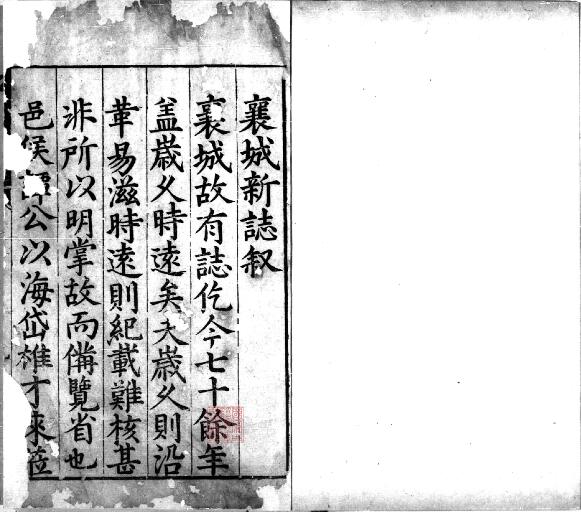 襄城新誌叙
襄城故有誌仡今七十餘年
盖歲久時逺矣夫歲久則沿
革易滋時逺則紀載難核甚
非所以明掌故而備覽省也
邑侯譚公以海岱雄才來蒞